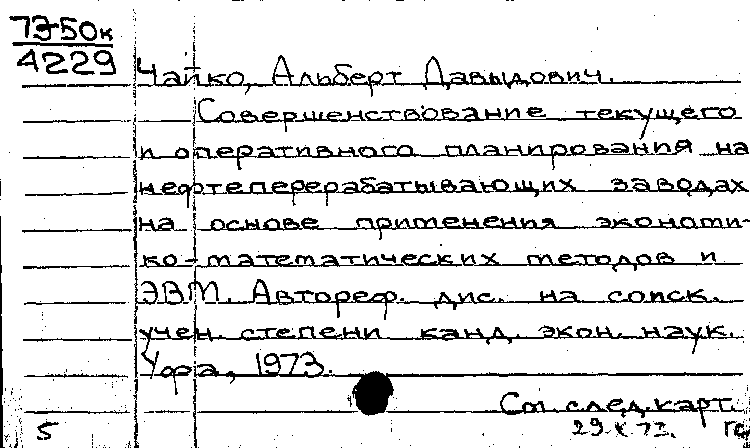 73-50к
4229
Чайко, Альберт Давыдович.
Совершенствование текущего
и оперативного планирования на
нефтеперерабатывающих заводах
на основе применения экономи-
ко-математических методов и
ЭВМ. Автореф. дис. на соиск.
учен. степени канд. экон. наук.
Уфа, 1973.
См. след. карт.
5